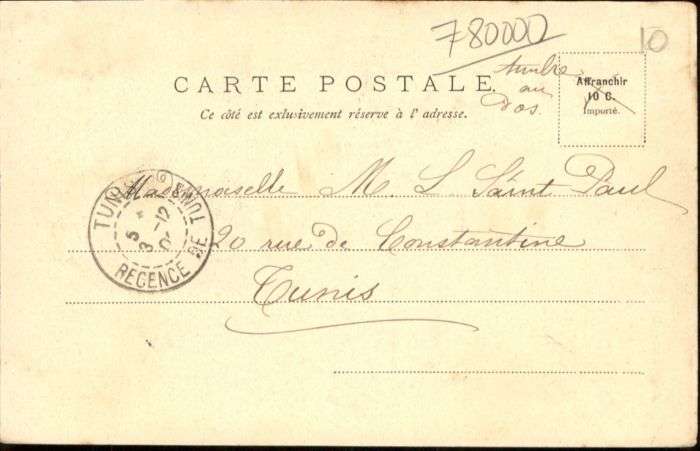 780000
10
timbre
au
dos
Affranchir
10 C.
Importé.
CARTE POSTALE.
Ce côté est exlusivement réserve à l'adresse.
Mademoiselle M. L Saint Paul
20 rue de Constantine
Tunis
TUNIS
REGENCE DE TUNIS